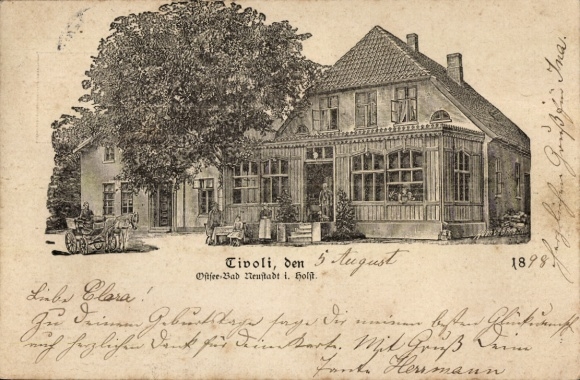 Tivoli, den 5 August 1898.
Ostsee-Bad Neustadt i. Holst.
Liebe Clara!
Zu deinem Geburtstage sage dir meinen besten Glückwunsch
und herzlichen Dank für deine Karte. Mit Gruß dein
Tante Herrmann
Herzlichen Gruß Ina.